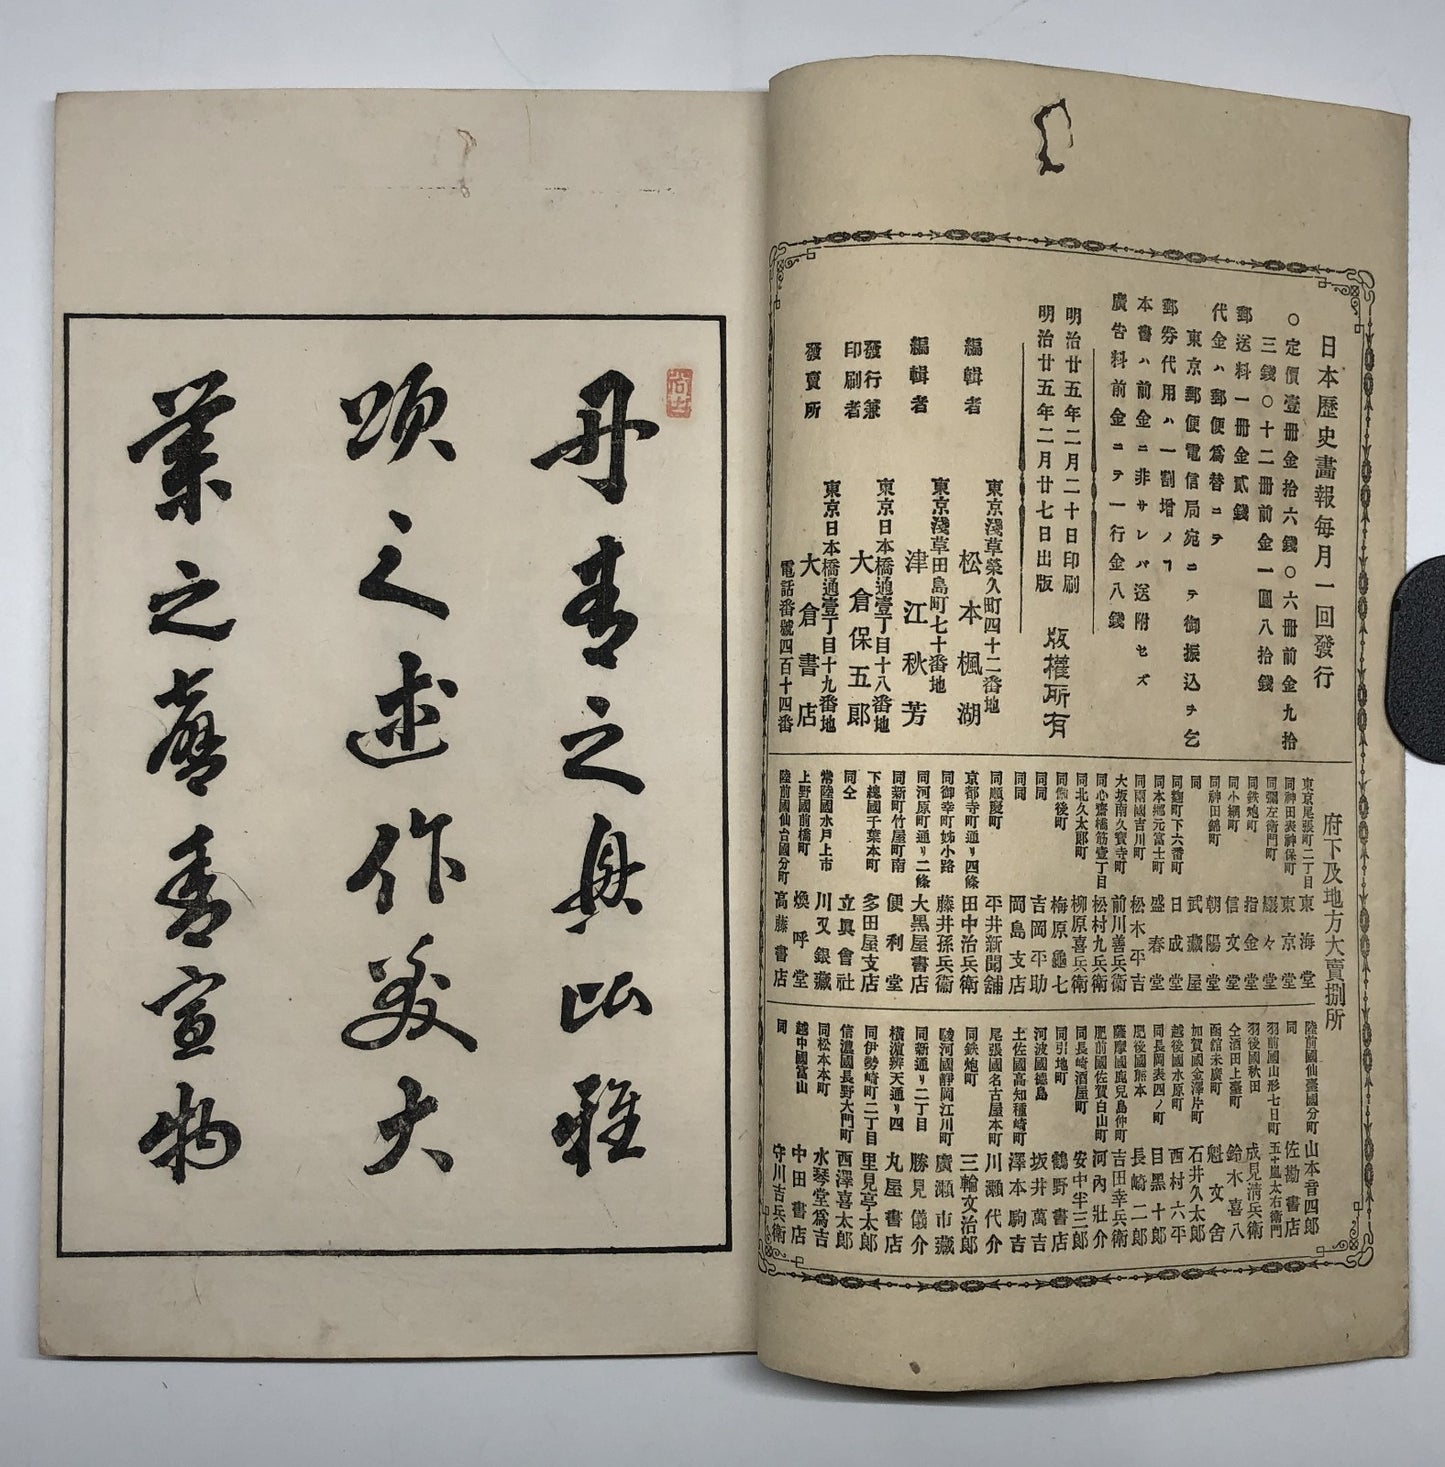 日本歷史畫報每月一回發行
○定價壹册金拾六錢○六册前金九拾
三錢○十二册前金一圓八拾錢
郵送料一册金貳錢
代金ハ郵便爲替ニテ
東京郵便電信局宛ニテ御振込ヲ乞
郵券代用ハ一割增ノヿ
本書ハ前金ニ非サレバ送附セズ
廣告料前金ニテ一行金八錢
明治廿五年二月二十日印刷
明治廿五年二月廿七日出版
版權所有
編輯者
東京淺草榮久町四十二番地
松本楓湖
編輯者
東京淺草田島町七十番地
津江秋芳
發行兼
印刷者
東京日本橋通壹丁目十八番地
大倉保五郎
發賣所
東京日本橋通壹丁目十九番地
大倉書店
電話番號四百十四番
府下及地方大賣捌所
東京尾張町二丁目 東海堂
同神田表神保町 東京堂
同彌左衛門町 巖々堂
同鉄炮町 指金堂
同小網町 信文堂
同神田錦町 朝陽堂
同 武藏屋
同麴町下六番町 日成堂
同本鄉元富士町 盛春堂
同兩國吉川町 松木平吉
大坂南久寶寺町 前川善兵衛
同心齋橋筋壹丁目 松村九兵衛
同北久太郎町 柳原喜兵衛
同備後町 梅原龜七
同同 吉岡平助
同同 岡島支店
同順慶町 平井新聞舖
京都寺町通リ四條 田中治兵衛
同御幸町姊小路 藤井孫兵衛
同河原町通リ二條 大黑屋書店
同新町竹屋町南 便利堂
下總國千葉本町 多田屋支店
同仝 立興會社
常陸國水戶上市 川又銀藏
上野國前橋町 煥呼堂
陸前國仙台國分町 高藤書店
陸前國仙臺國分町 山本音四郎
同 佐勘書店
羽前國山形七日町 五十嵐太右衛門
羽後國秋田 成見淸兵衛
仝酒田上臺町 鈴木喜八
函館末廣町 魁文舍
加賀國金澤片町 石井久太郎
越後國水原町 西村六平
同長岡表四ノ町 目黑十郎
肥後國熊本 長崎二郎
薩摩國鹿兒島仲町 吉田幸兵衛
肥前國佐賀白山町 河內壯介
同長崎酒屋町 安中半三郎
同引地町 鶴野書店
阿波國德島 坂井萬吉
土佐國高知種崎町 澤本駒吉
尾張國名古屋本町 川瀨代介
同鉄炮町 三輪文治郎
駿河國靜岡江川町 廣瀨市藏
同新通リ二丁目 勝見儀介
橫濱辨天通リ四 丸屋書店
同伊勢崎町二丁目 里見亭太郎
信濃國長野大門町 西澤喜太郎
同松本本町 水琴堂爲吉
越中國富山 中田書店
同 守川吉兵衛
丹靑之興比雅
頌之述作美大
業之馨香宣物